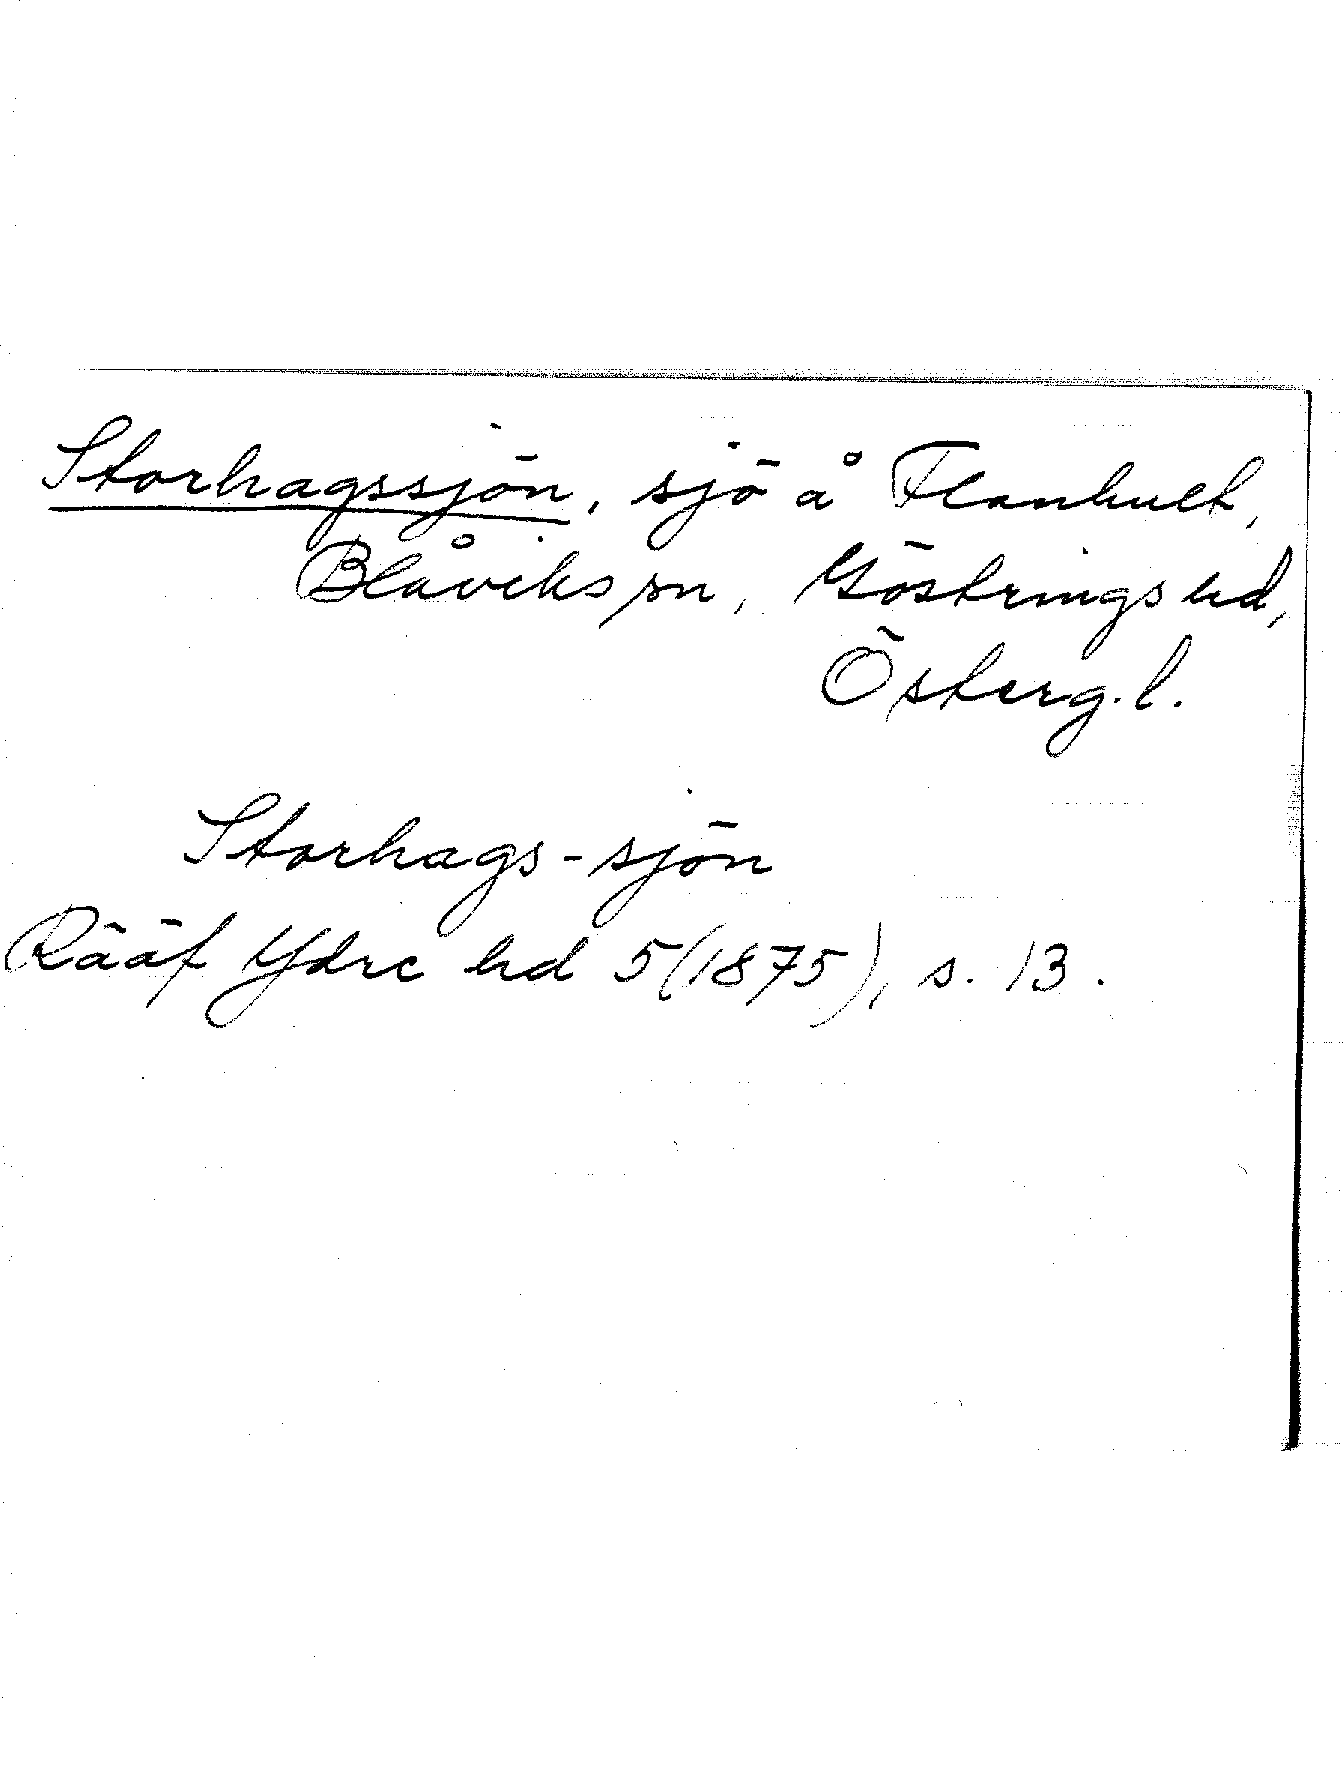 Storhagssjön, sjö å Flanhult,
Blåviks sn, Göstrings hd,
Österg.l.
Storhags-sjön
Rääf Ydre hd 5(1875), s. 13.